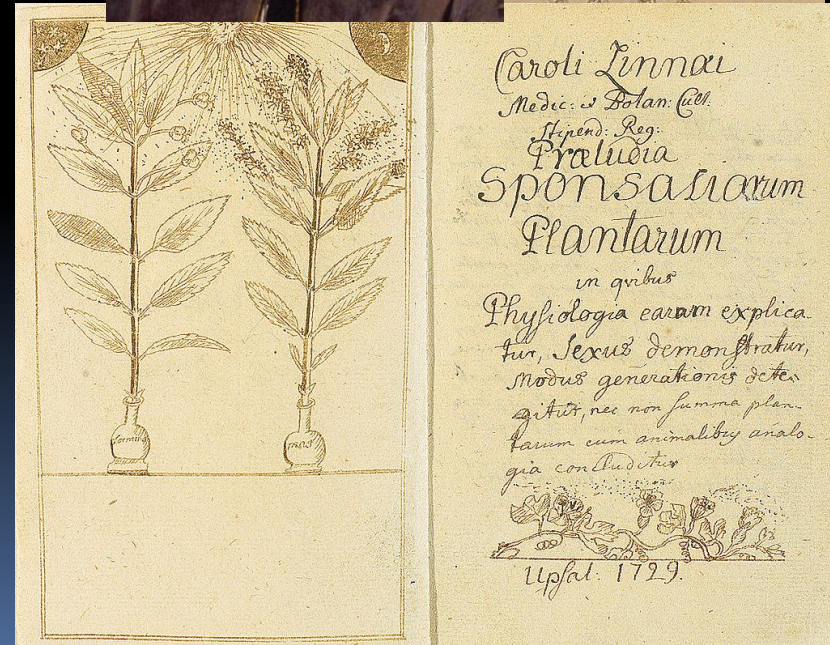 femina
mas
Caroli Linnæi
Medic: & Botan: Cult.
Stipend: Reg:
Præludia
Sponsaliarum
Plantarum
in qvibus
Physiologia earum explica
tur, Sexus demonstratur,
Modus generationis dete-
gitur, nec non summa plan-
tarum cum animalibus analo-
gia concluditur
Upsal: 1729.